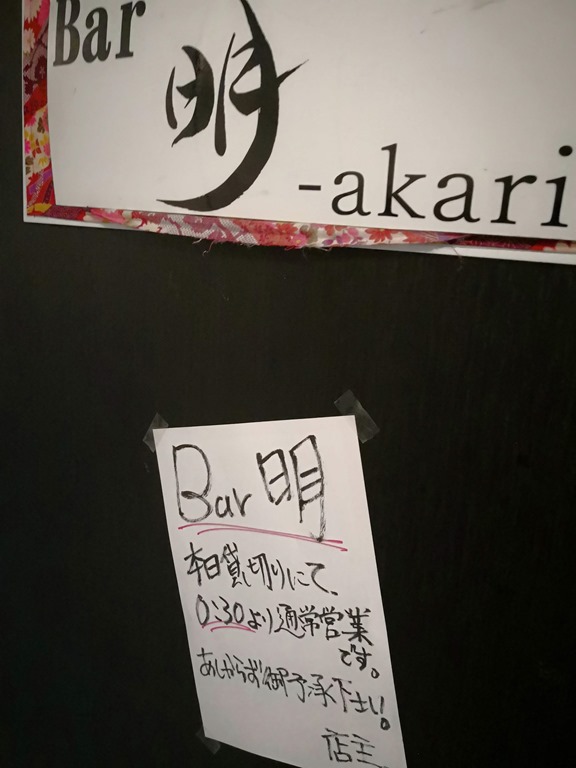 Bar
明
-akari
Bar 明
本日貸し切りにて、
0:30より通常営業
です。
あしからず御予承下さい。
店主